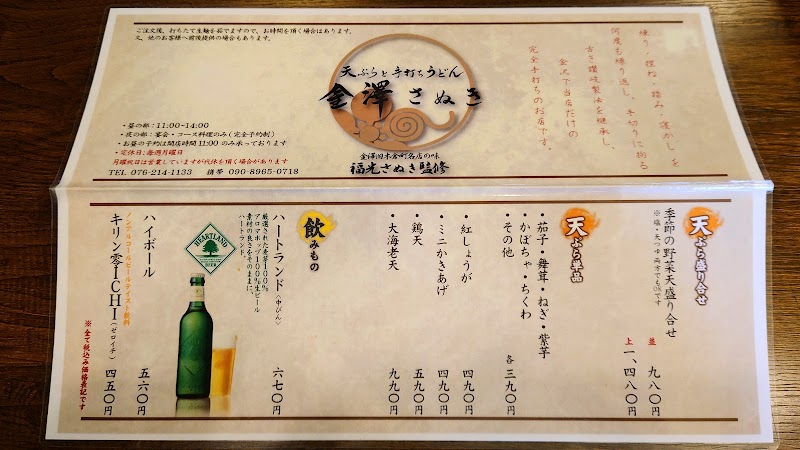 ご注文後、打ちたて生麺を茹でますので、お時間を頂く場合があります。
又、他のお客様へ前後提供の場合もあります。
天ぷらと手打ちうどん
金澤さぬき
金澤旧木倉町名店の味
福光さぬき監修
・昼の部：11:00~14:00
・夜の部：宴会・コース料理のみ(完全予約制)
・お昼の予約は開店時間11:00のみ承っております
・定休日：毎週月曜日
月曜祝日は営業していますが代休を頂く場合があります
TEL 076-214-1133 携帯 090-8965-0718
練り、捏ね、踏み、寝かし、を
何度も繰り返し、手切りに拘る
古き讃岐製法を継承し、
金沢で当店だけの
完全手打ちのお店です。
天ぷら盛り合せ
季節の野菜天盛り合せ
※塩・天つゆ両方でもOKです
並 九八〇円
上 一、四八〇円
天ぷら単品
・茄子・舞茸・ねぎ・紫芋
・かぼちゃ・ちくわ
・その他
各 三九〇円
・紅しょうが 四九〇円
・ミニかきあげ 四九〇円
・鶏天 五九〇円
・大海老天 九九〇円
飲みもの
ハートランド(中びん) 六七〇円
厳選された麦芽100%
アロマホップ100%生ビール
素材の良さをそのままに、
ハートランド。
HEARTLAND
BEER
ハイボール 五六〇円
ノンアルコールビールテイスト飲料
キリン零ICHI(ゼロイチ) 四五〇円
※全て税込み価格表記です